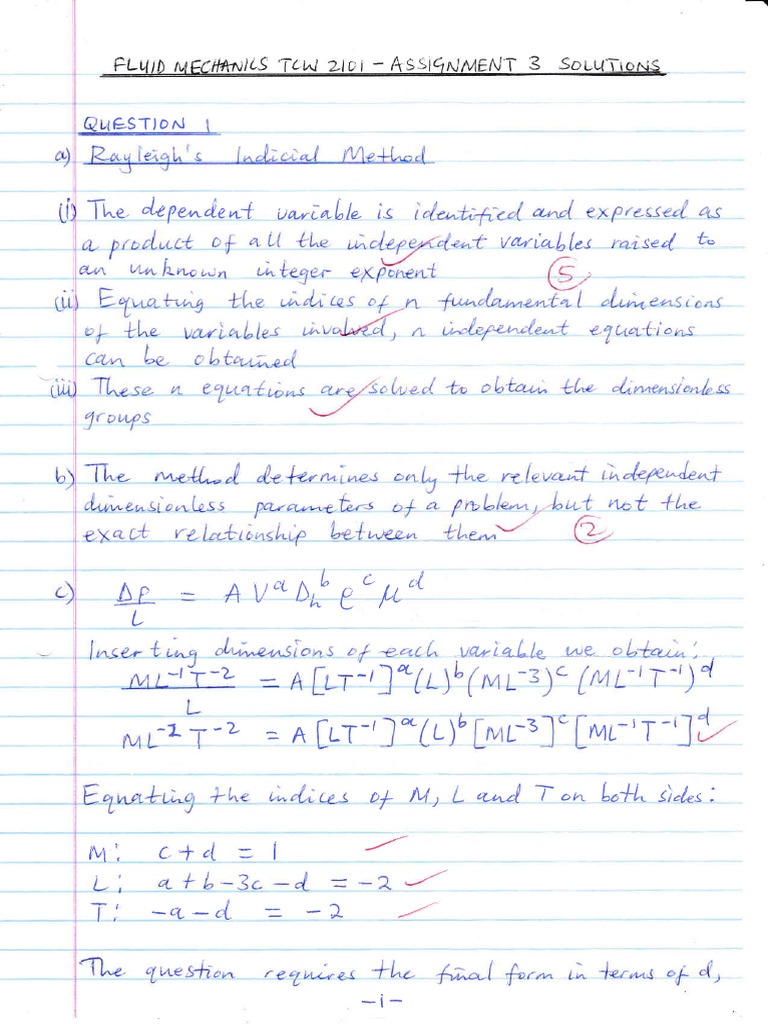 FLUID MECHANICS TCW 2101 – ASSIGNMENT 3 SOLUTIONS
QUESTION 1
a) Rayleigh's Indicial Method
(i) The dependent variable is identified and expressed as
a product of all the independent variables raised to
an unknown integer exponent
5
(ii) Equating the indices of n fundamental dimensions
of the variables involved, n independent equations
can be obtained
(iii) These n equations are solved to obtain the dimensionless
groups
b) The method determines only the relevant independent
dimensionless parameters of a problem, but not the
exact relationship between them
2
c) ΔP/L = A V^a D_h^b ρ^c μ^d
Inserting dimensions of each variable we obtain:
ML^-1 T^-2 / L = A [LT^-1]^a (L)^b (ML^-3)^c (ML^-1 T^-1)^d
ML^-2 T^-2 = A [LT^-1]^a (L)^b [ML^-3]^c [ML^-1 T^-1]^d
Equating the indices of M, L and T on both sides:
M: c + d = 1
L: a + b - 3c - d = -2
T: -a - d = -2
The question requires the final form in terms of d,
-i-